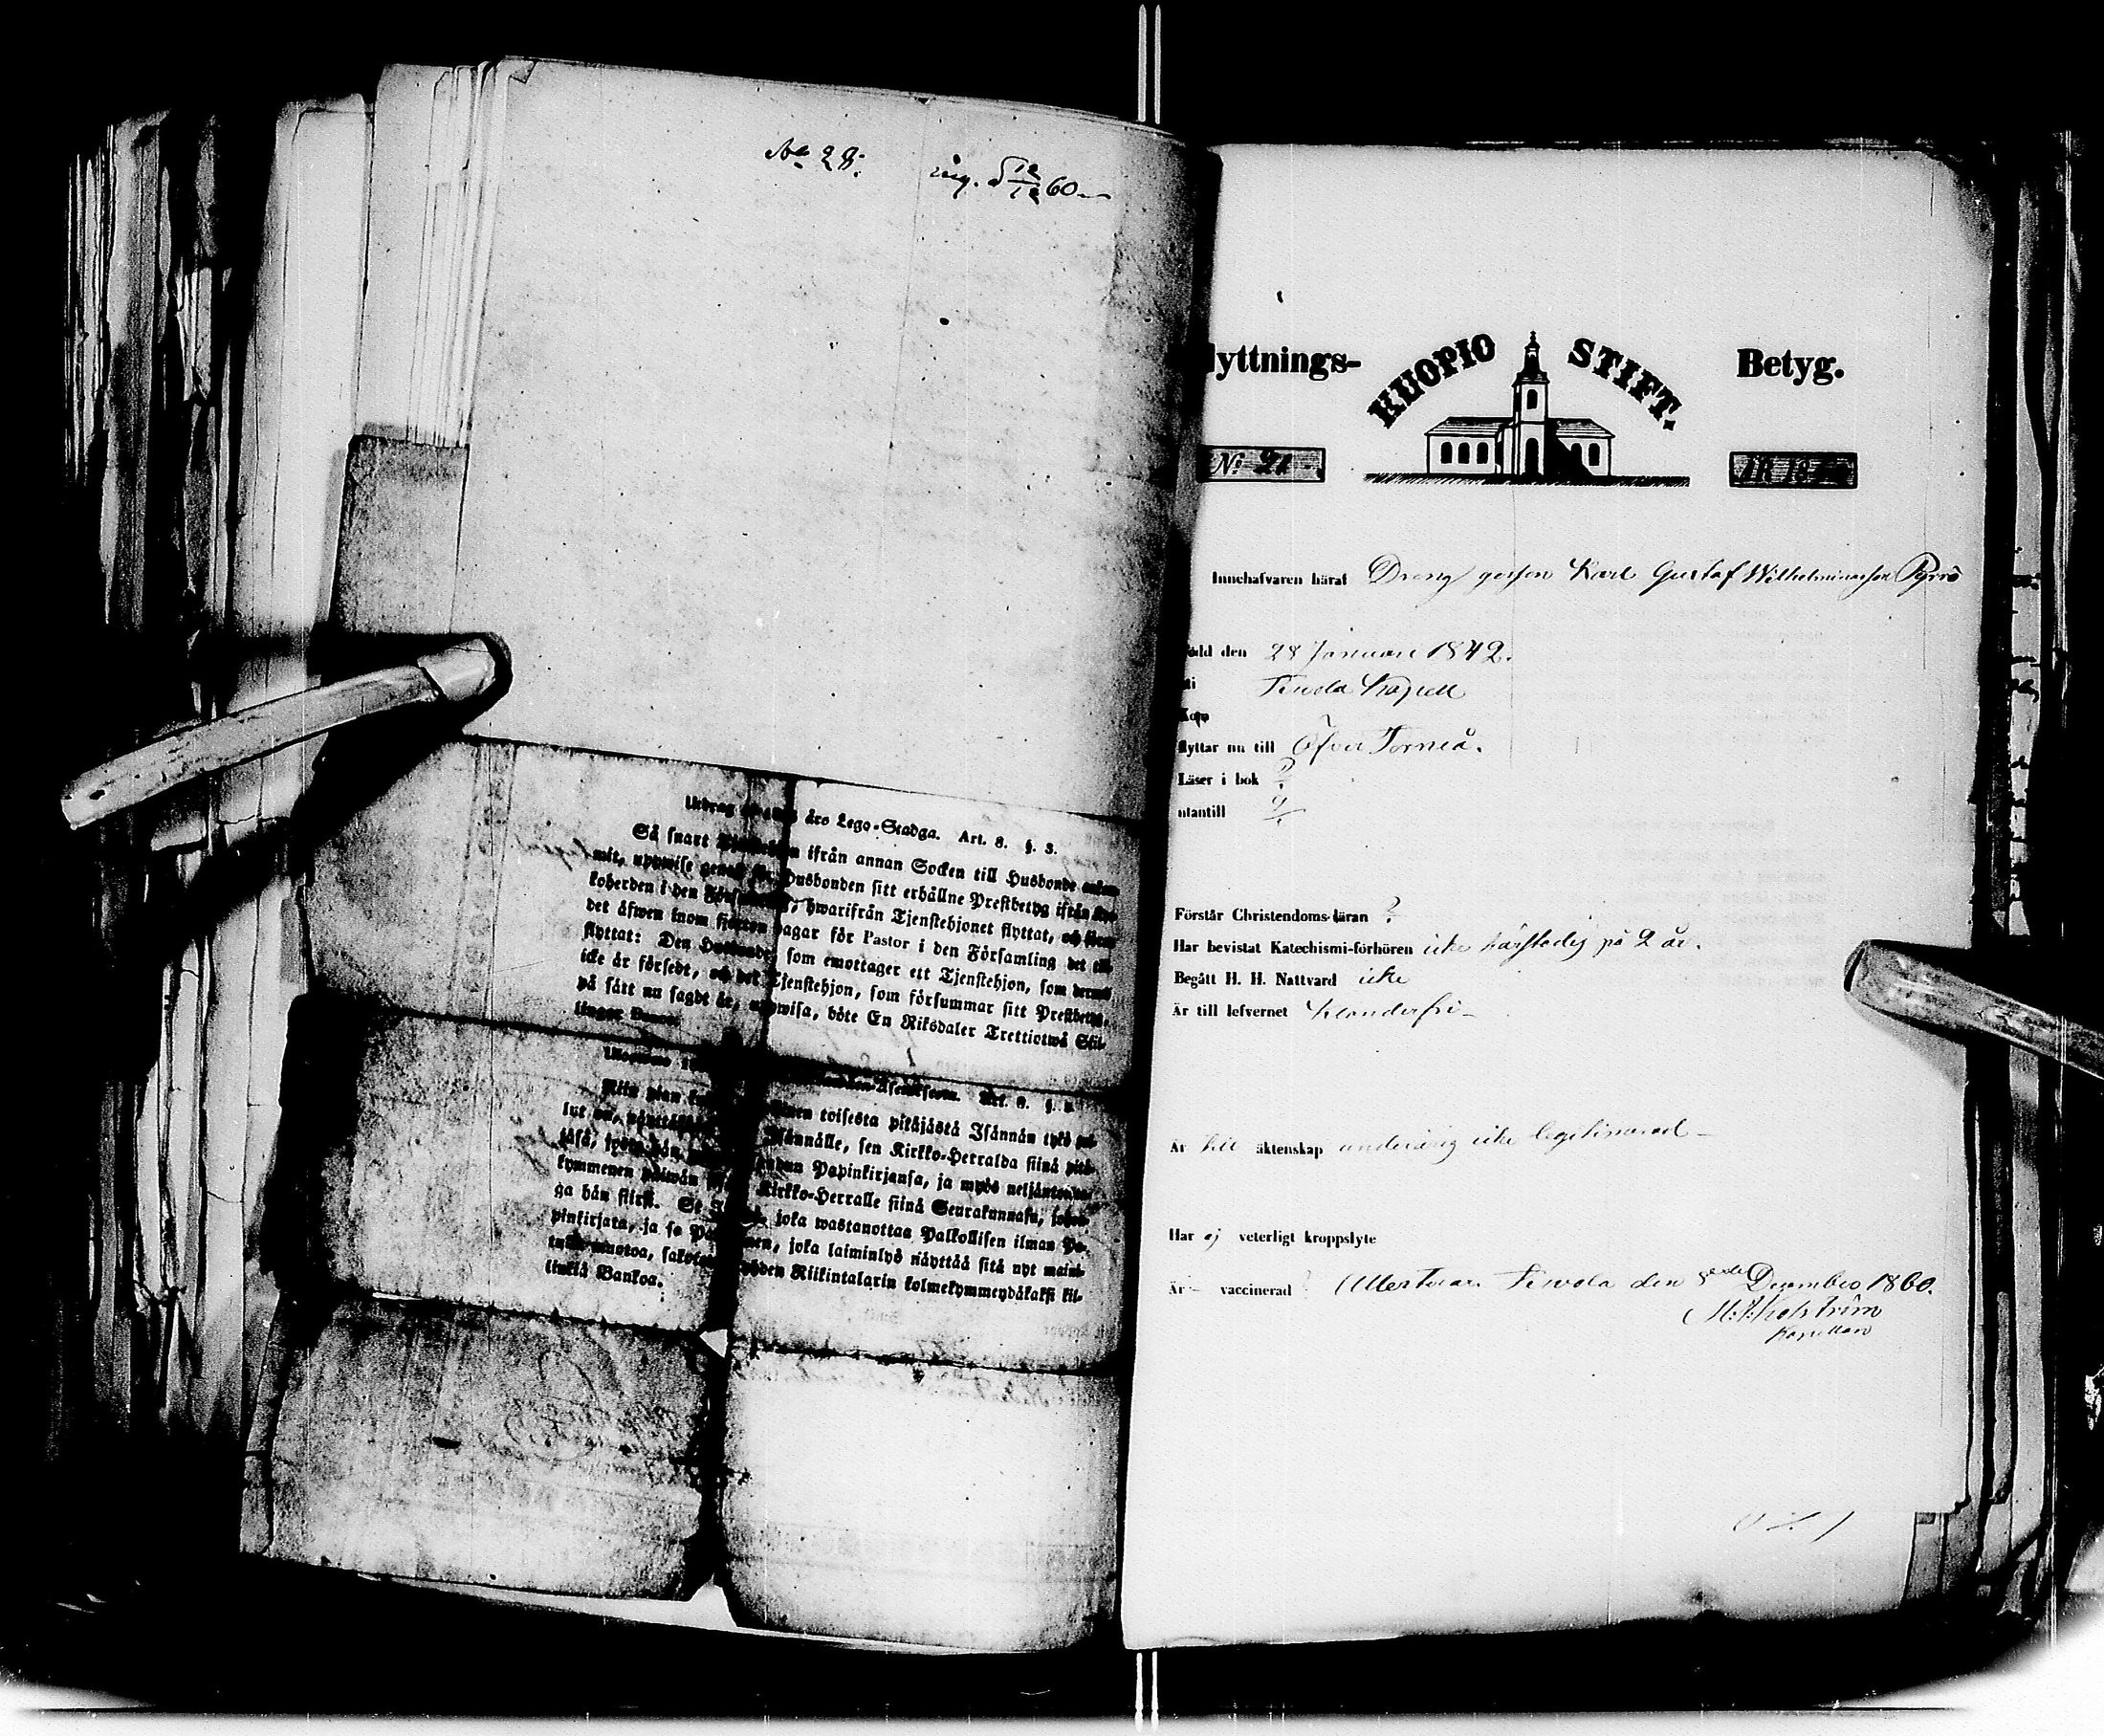 No 28.
ing. d 12/12 60
års Lego-Stadga. Art. 8. §. 3.
Så snart ifrån annan Socken till Husbonde
mit, uppwise Husbonden sitt erhållne Prestbetyg ifrån
koherden i den hwarifrån Tjenstehjonet flyttat, och
det äfwen inom fjorton dagar för Pastor i den Församling det
flyttat: Den som emottager ett Tjenstehjon, som
icke är försedt, och det Tjenstehjon, som försummar sitt Prestbetyg,
på sätt nu sagdt är, uppwisa, böte En Riksdaler Trettiotwå Skil-
lingar
Niin pian toisesta pitäjästä Isännän tykö
lut on, Isännälle, sen Kirkko-Herralda siinä pitä-
jäsä, Papinkirjansa, ja myös neljäntoista-
kymmenen päiwän Kirkko-Herralle siinä Seurakunnasa,
ga hän siirsi. joka wastanottaa Palkollisen ilman Pa-
pinkirjata, ja se joka laiminlyö näyttää sitä nyt maini-
tulla muotoa, Riikintalarin kolmekymmendäkaksi kil-
linkiä Bankoa.
lyttnings- KUOPIO STIFT. Betyg.
No 21
18
Innehafvaren häraf Dreng gossen Karl Gustaf Wilhelminasson Pyrrö
född den 28 Januari 1842.
i Tervola Kapell
Kom
flyttar nu till Öfver Torneå.
Läser i bok ?
utantill ?
Förstår Christendoms-läran ?
Har bevistat Katechismi-förhören icke härstädes på 2 år.
Begått H. H. Nattvard icke
Är till lefvernet klanderfri
Är till äktenskap underårig icke legitimerad
Har ej veterligt kroppslyte
Är vaccinerad ? Attesterar. Tervola den December 1860.
Kapellan